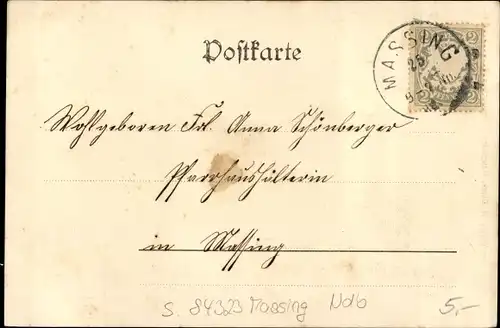 Postkarte
MASSING
25
2 2
Wohlgeboren Frl. Anna Schönberger
Pfarrhaushälterin
in Massing
S. 84323 Massing Ndb
5,-